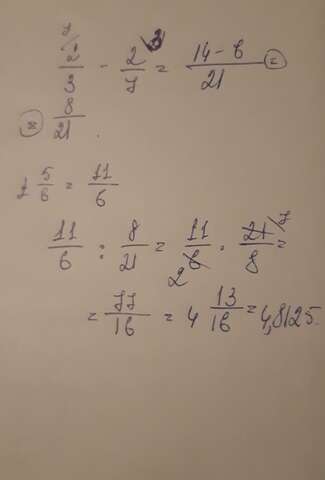 2/3 ⁷ - 2/7 ³ = (14-6)/21 =
= 8/21 .
1 5/6 = 11/6
11/6 : 8/21 = 11/6 2 · 21/8 7 =
= 77/16 = 4 13/16 = 4,8125.